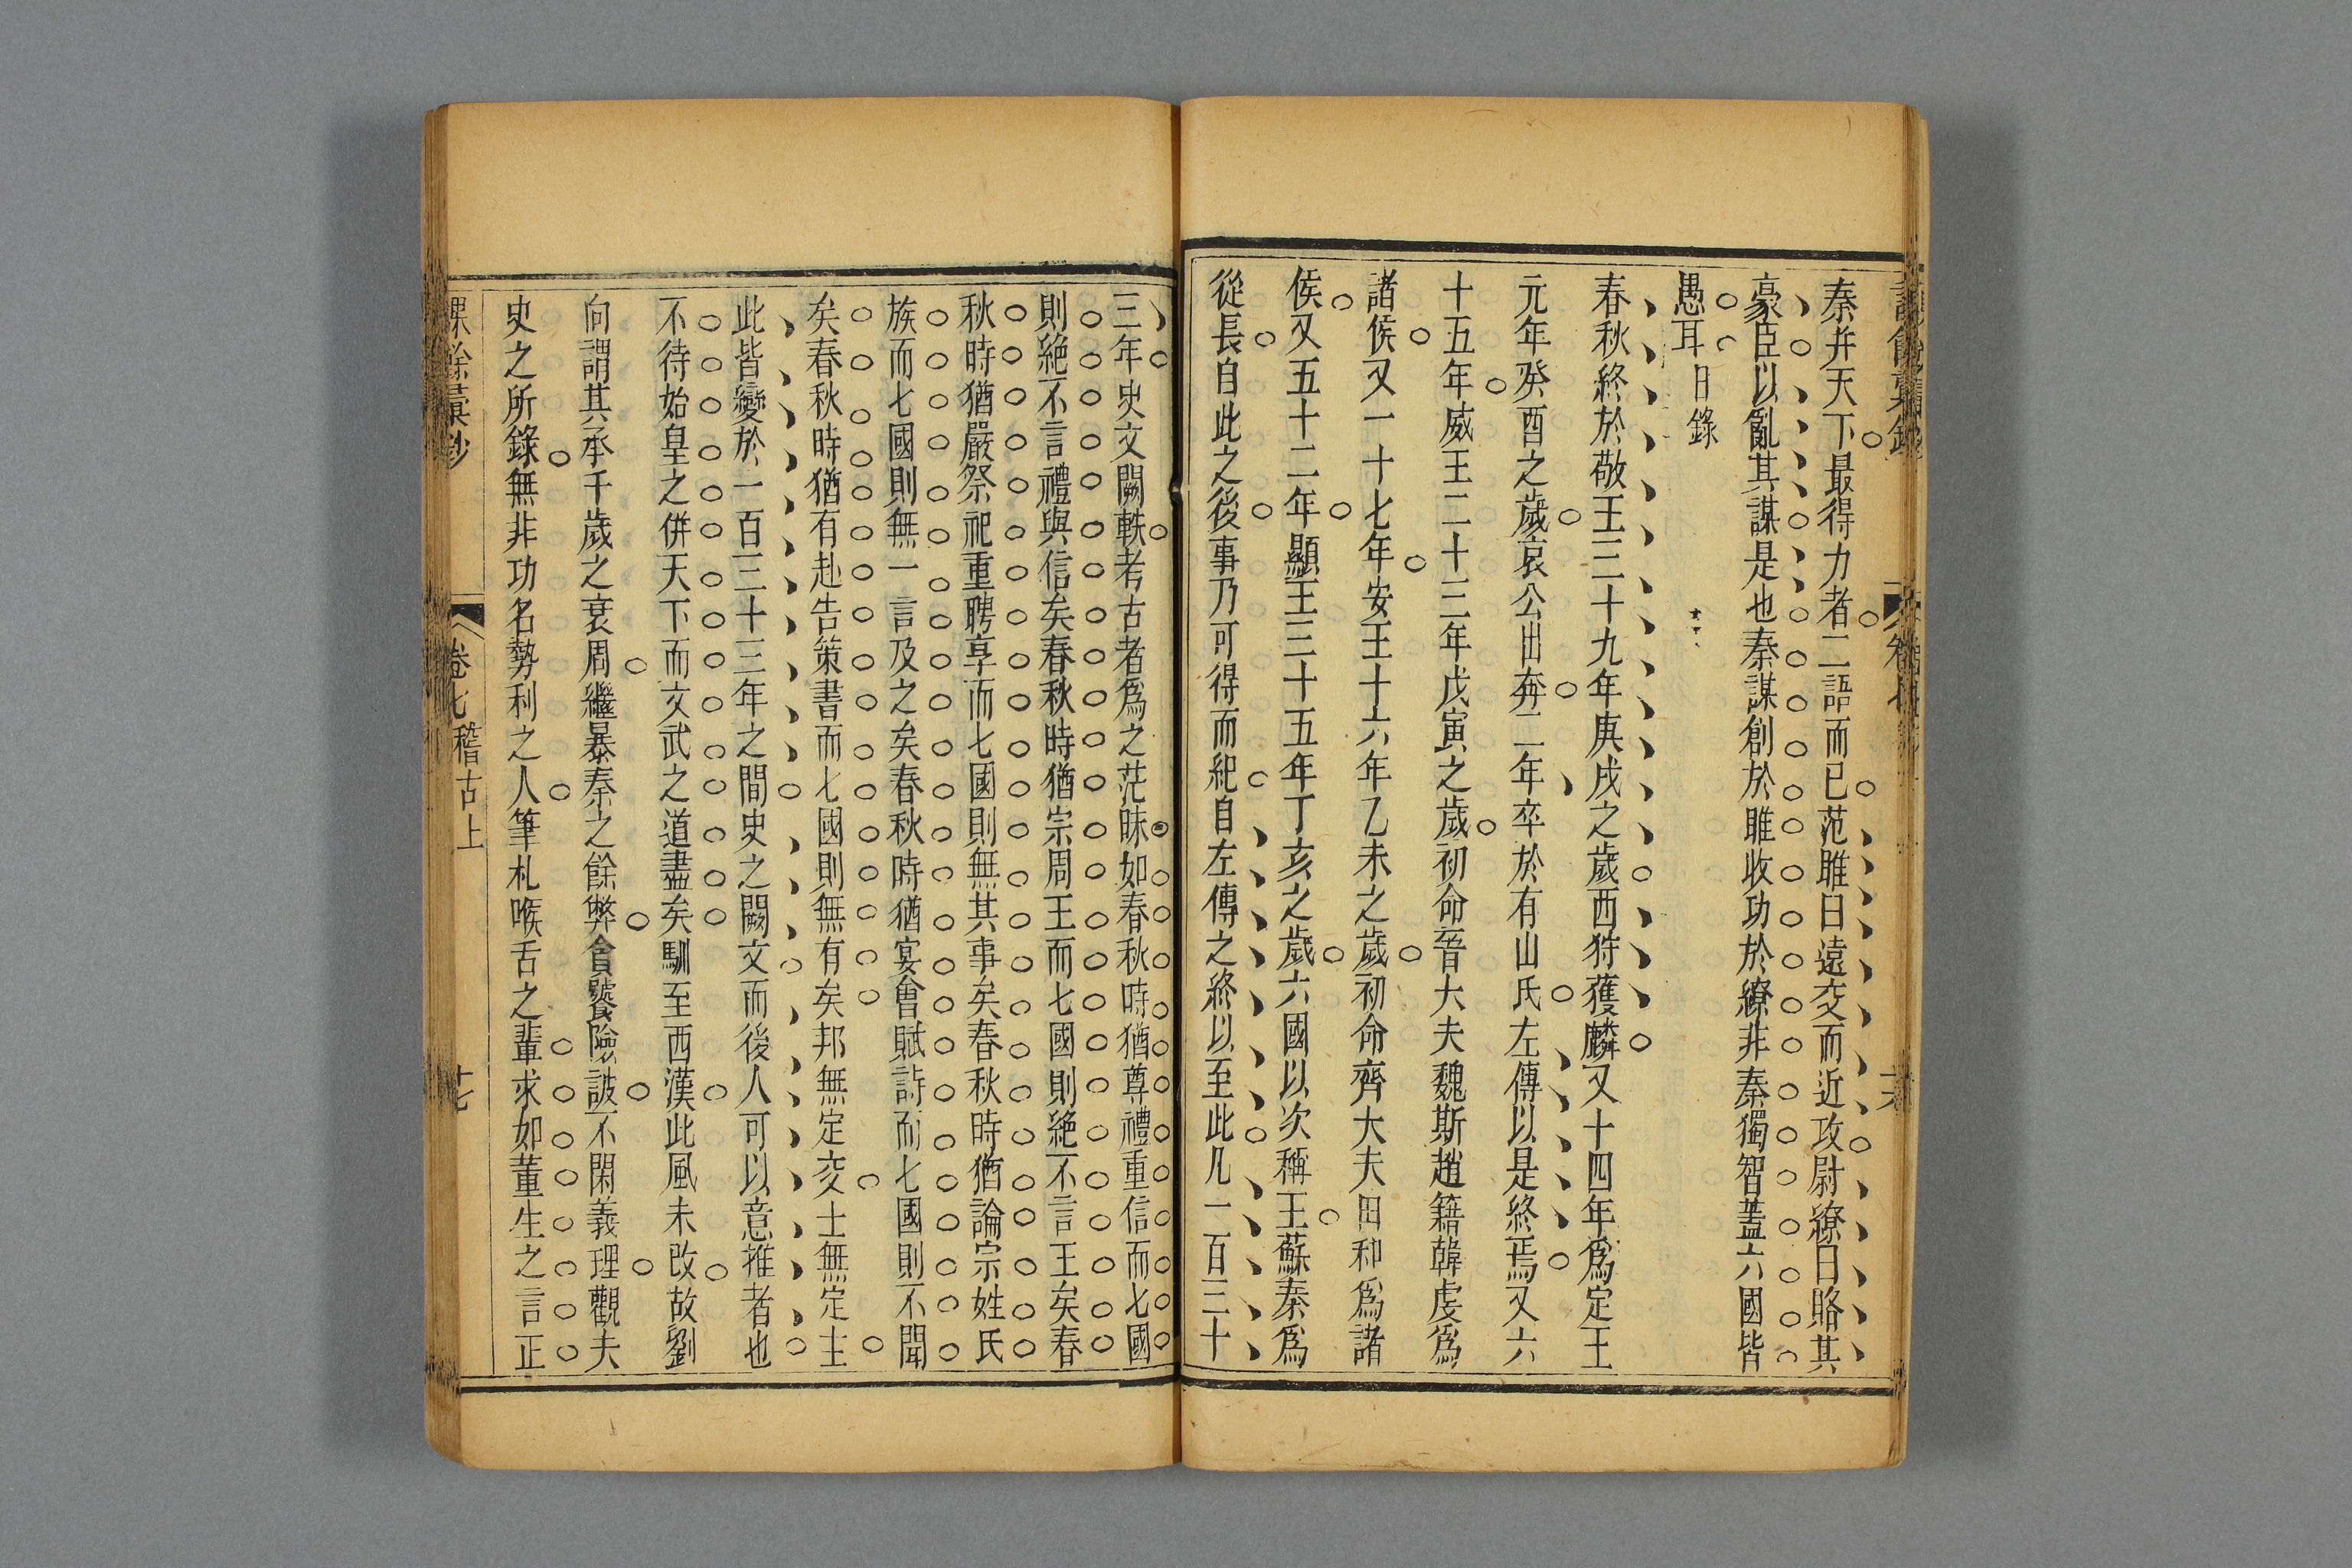 秦并天下最得力者二語而已范雎曰遠交而近攻尉繚曰賂其
豪臣以亂其謀是也秦謀創於雎收功於繚非秦獨智蓋六國皆
愚耳日錄
春秋終於敬王三十九年庚戌之歲西狩獲麟又十四年爲定王
元年癸酉之歲哀公出奔二年卒於有山氏左傳以是終焉又六
十五年威王二十三年戊寅之歲初命晉大夫魏斯趙籍韓虔爲
諸侯又一十七年安王十六年乙未之歲初命齊大夫田和爲諸
侯又五十二年顯王三十五年丁亥之歲六國以次稱王蘇秦爲
從長自此之後事乃可得而紀自左傳之終以至此凡一百三十
三年史文闕軼考古者爲之茫昧如春秋時猶尊禮重信而七國
則絕不言禮與信矣春秋時猶宗周王而七國則絕不言王矣春
秋時猶嚴祭祀重聘享而七國則無其事矣春秋時猶論宗姓氏
族而七國則無一言及之矣春秋時猶宴會賦詩而七國則不聞
矣春秋時猶有赴告策書而七國則無有矣邦無定交士無定主
此皆變於一百三十三年之間史之闕文而後人可以意推者也
不待始皇之併天下而文武之道盡矣馴至西漢此風未改故劉
向謂其承千歲之衰周繼暴秦之餘弊貪饕險詖不閑義理觀夫
史之所錄無非功名勢利之人筆札喉舌之輩求如董生之言正
課餘彙鈔
卷七稽古上
十七